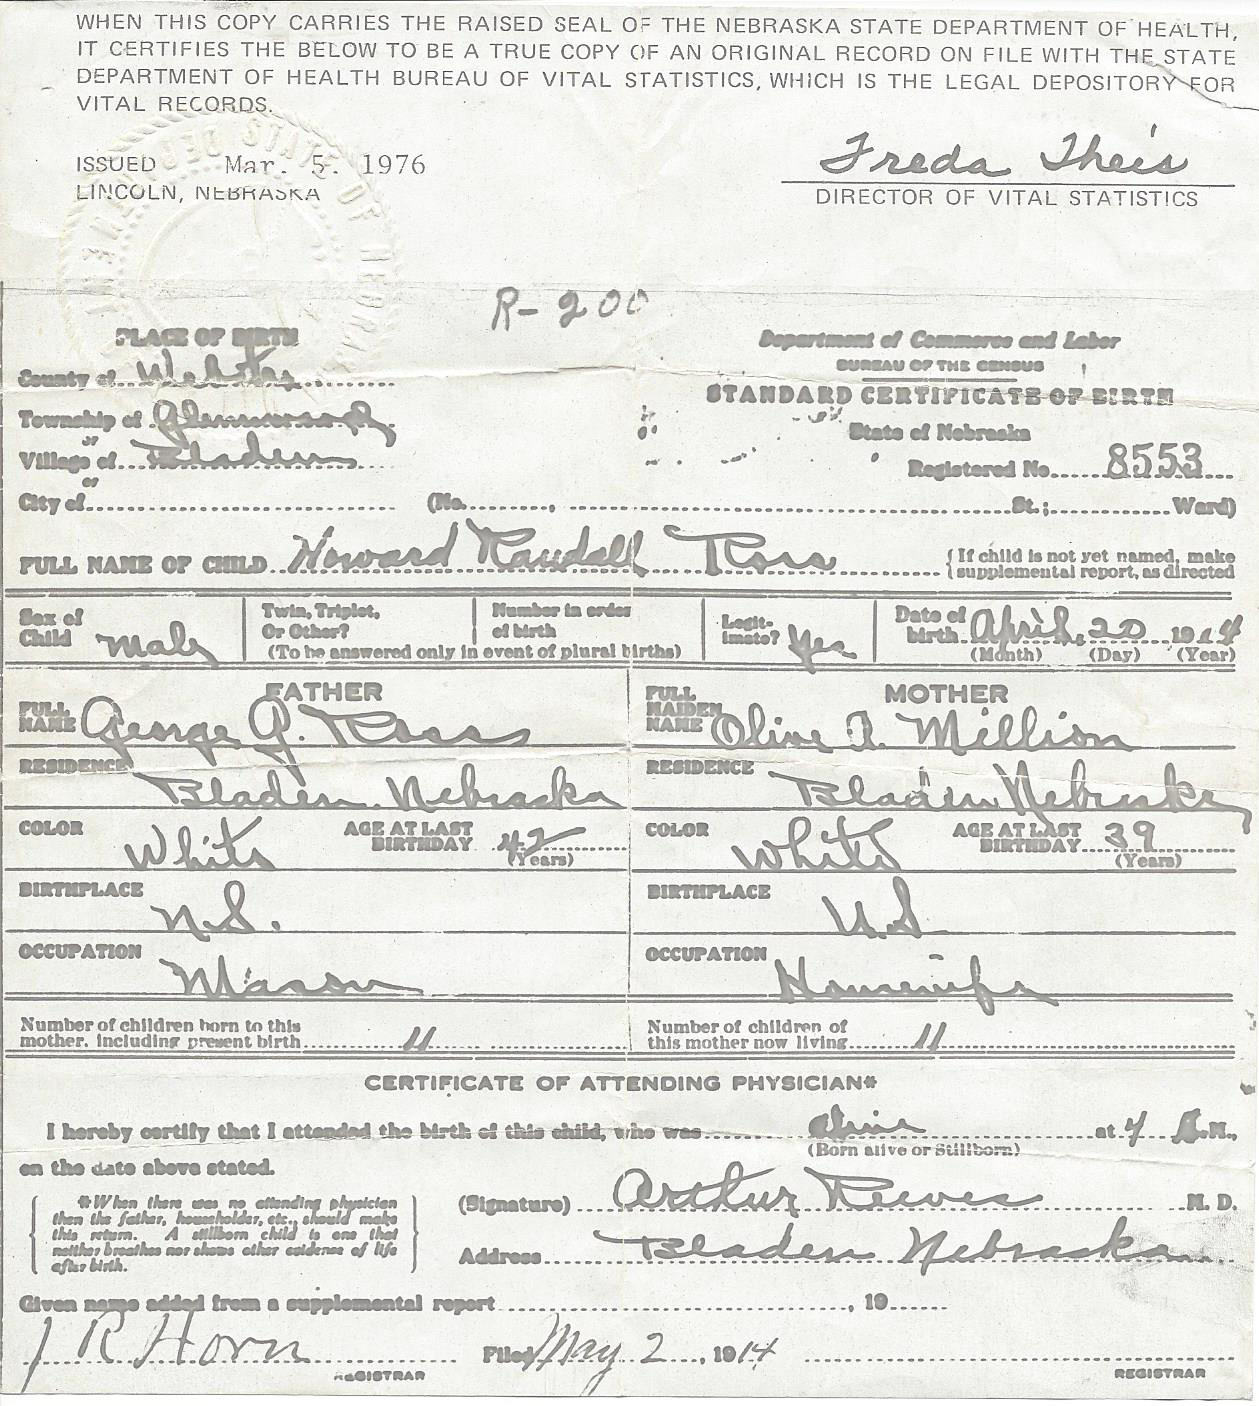 WHEN THIS COPY CARRIES THE RAISED SEAL OF THE NEBRASKA STATE DEPARTMENT OF HEALTH,
IT CERTIFIES THE BELOW TO BE A TRUE COPY OF AN ORIGINAL RECORD ON FILE WITH THE STATE
DEPARTMENT OF HEALTH BUREAU OF VITAL STATISTICS, WHICH IS THE LEGAL DEPOSITORY FOR
VITAL RECORDS.
ISSUED Mar. 5. 1976
LINCOLN, NEBRASKA
Freda Theis
DIRECTOR OF VITAL STATISTICS
R-200
PLACE OF BIRTH
County of Webster
Township of Glenwood
or
Village of Bladen
or
City of
Department of Commerce and Labor
BUREAU OF THE CENSUS
STANDARD CERTIFICATE OF BIRTH
State of Nebraska
Registered No. 8553
(No. , St.; Ward)
FULL NAME OF CHILD Howard Randall Ross
{If child is not yet named, make
supplemental report, as directed
Sex of
Child Male
Twin, Triplet,
Or Other?
Number in order
of birth
(To be answered only in event of plural births)
Legit-
imate? Yes
Date of
birth April 20 1914
(Month) (Day) (Year)
FATHER
FULL
NAME George G. Ross
RESIDENCE
Bladen Nebraska
COLOR White
AGE AT LAST
BIRTHDAY 42
(Years)
BIRTHPLACE
OCCUPATION
Mason
MOTHER
FULL
MAIDEN
NAME Olive A. Million
RESIDENCE
Bladen Nebraska
COLOR White
AGE AT LAST
BIRTHDAY 39
(Years)
BIRTHPLACE
U.S
OCCUPATION
Housewife
Number of children born to this
mother, including present birth 11
Number of children of
this mother now living 11
CERTIFICATE OF ATTENDING PHYSICIAN*
I hereby certify that I attended the birth of this child, who was alive at 4 A.M.,
(Born alive or Stillborn)
on the date above stated.
*When there was no attending physician
then the father, householder, etc., should make
this return. A stillborn child is one that
neither breathes nor shows other evidence of life
after birth.
(Signature) Arthur Reeves M. D.
Address Bladen Nebraska
Given name added from a supplemental report , 19
J R Horn
REGISTRAR
Filed May 2, 1914
REGISTRAR